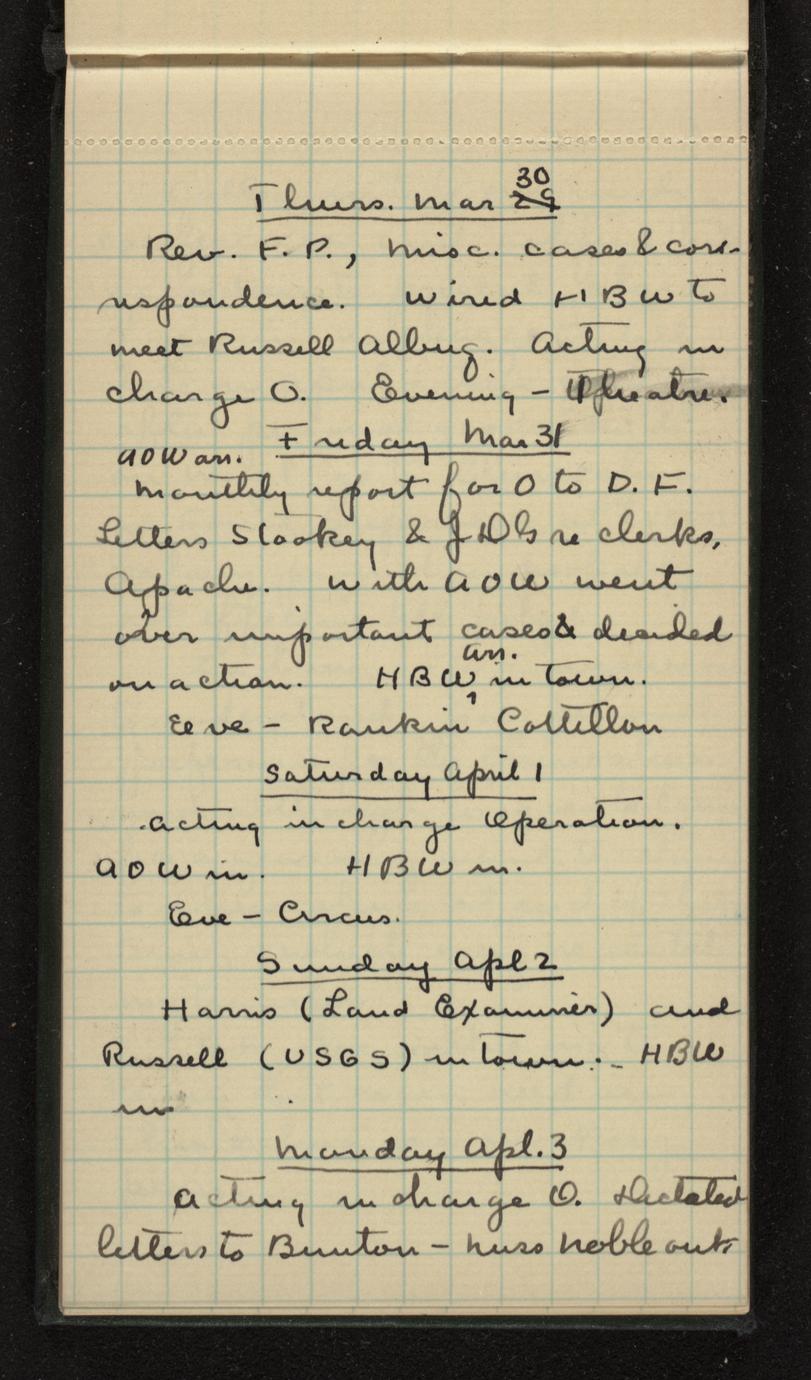 Thurs. Mar 29 30
Rev. F. P., Misc. cases & corr-
espondence. Wired HBW to
meet Russell Albuq. Acting in
charge O. Evening - Theatre.
Friday Mar 31
AOW arr.
Monthly report for O to D. F.
Letters Stookey & JDG re clerks,
Apache. With AOW went
over important cases & decided
on action. HBW arr. in town.
Eve - Rankin Cottillon
Saturday April 1
Acting in charge Operation.
AOW in. HBW in.
Eve - Circus.
Sunday Apl 2
Harris (Land Examiner) and
Russell (USGS) in town. - HBW
in
Monday Apl. 3
Acting in charge O. Dictated
letters to Bunton - Miss Noble out